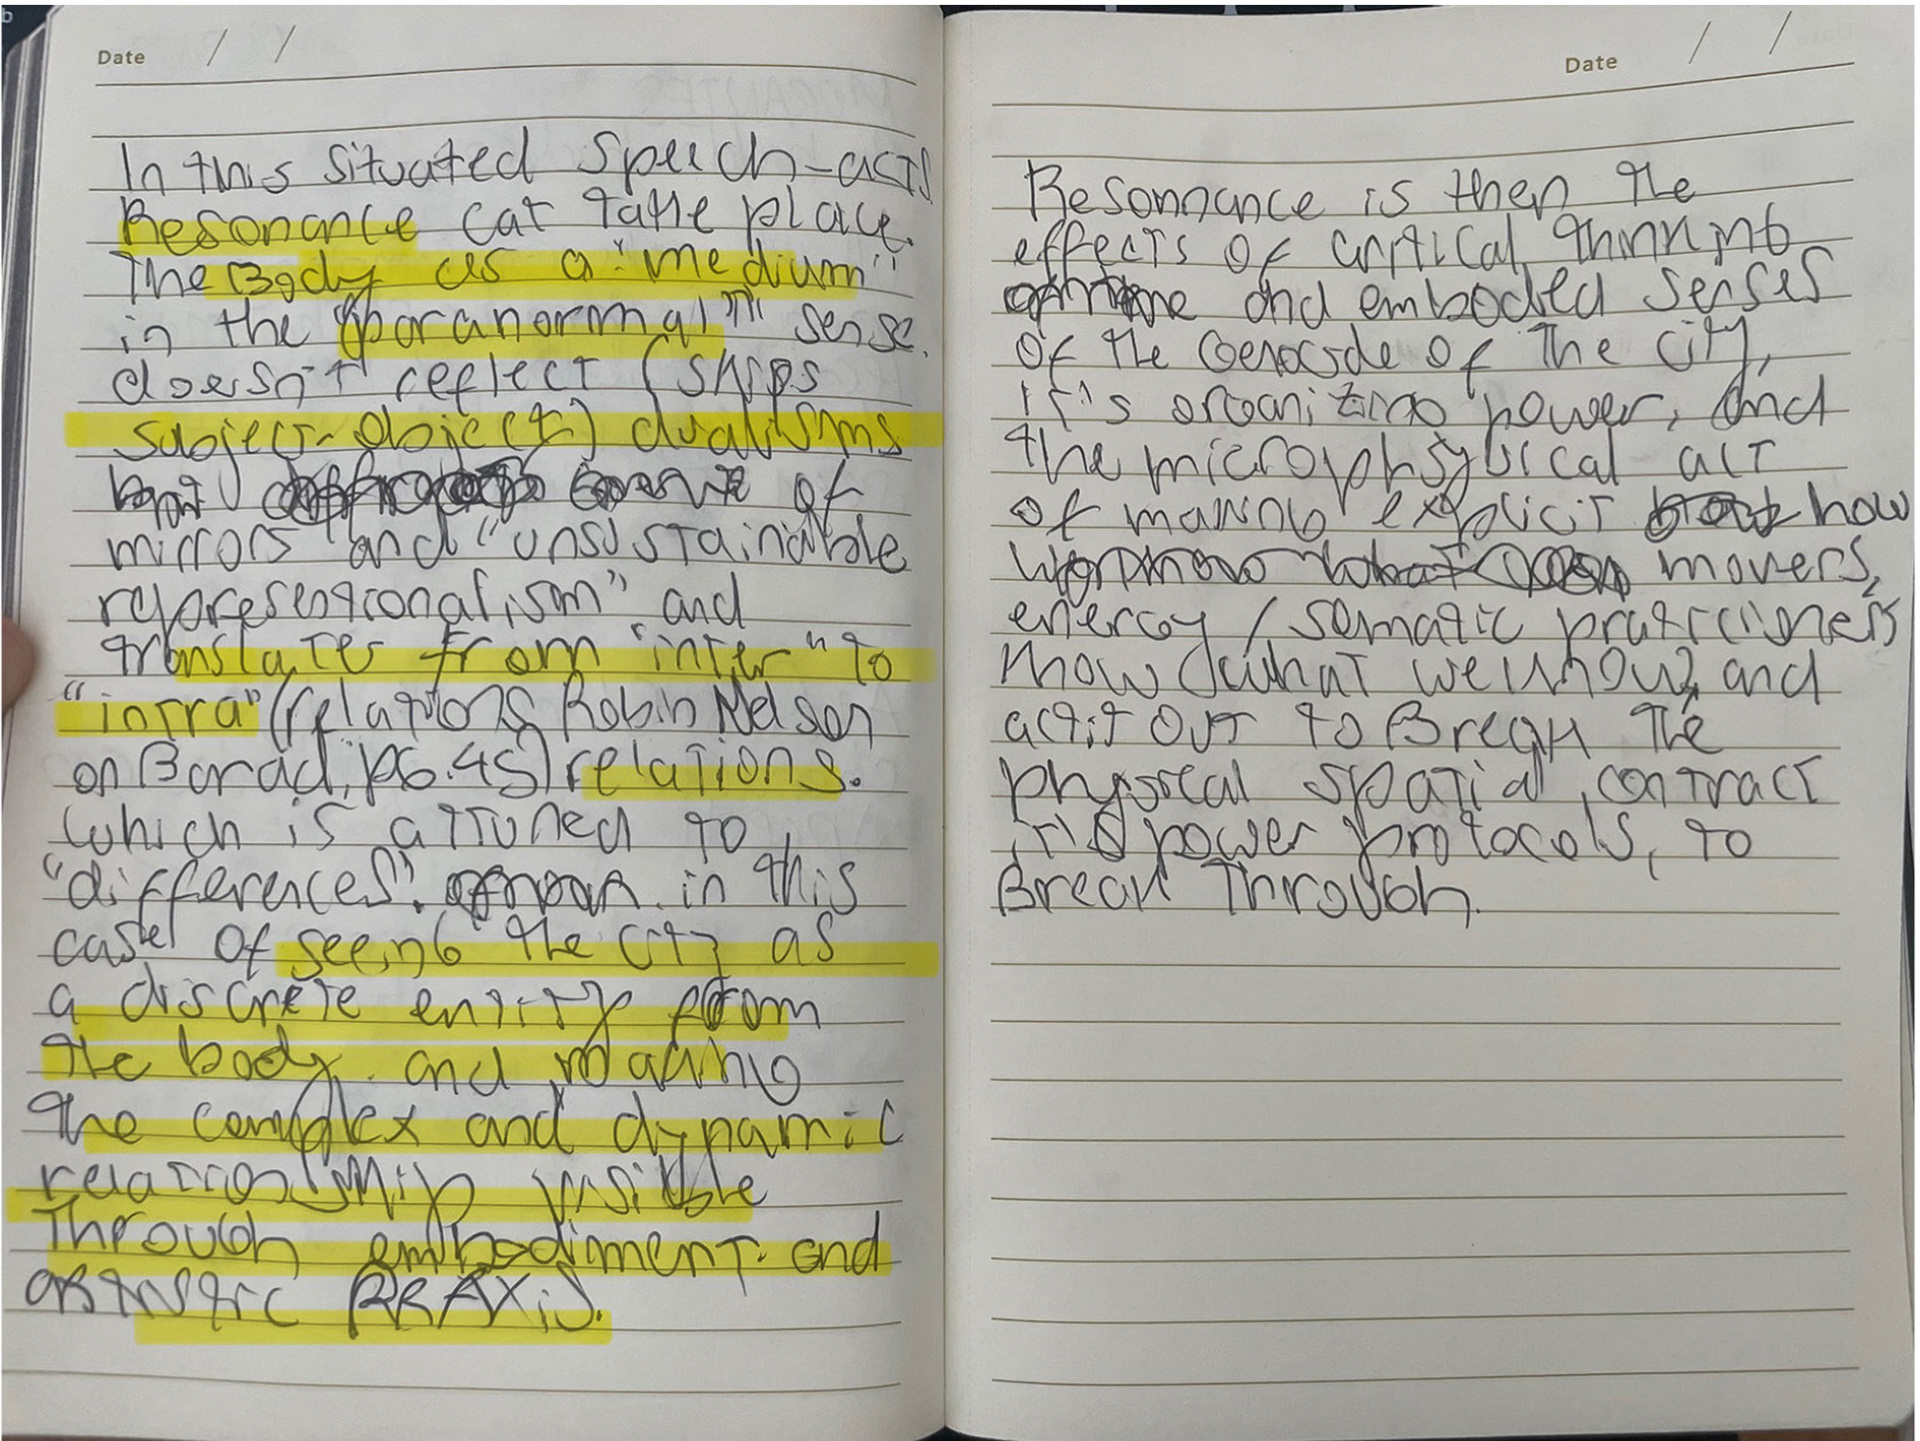 Date / /
In this situated speech-acts
Resonance cat take place.
The Body as a "medium"
in the "paranormal" sense.
doesn't reflect (skips
subject-object) dualisms
but of
mirrors and "unsustainable
representionalism" and
translates from "inter" to
"intra" (relations Robin Nelson
on Barad, pg. 45) relations.
which is attuned to
"differences". in this
case of seeing the city as
a discrete entity from
the body. and making
the complex and dynamic
relationship visible
Through embodiment. and
artistic PRAXiS.
Date / /
Resonnance is then the
effects of critical thinking
and embodied senses
of the of the city,
it's organizing power, and
the microphsysical act
of making explicit how
movers,
energy / somatic practicioners
know (what we know) and
act it out to Break the
physical spatial contract
it's power protocols, to
Break Through.